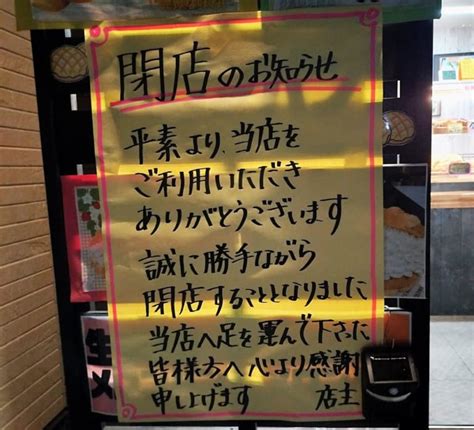 閉店のお知らせ
平素より、当店を
ご利用いただき
ありがとうございます
誠に勝手ながら
閉店することとなりました
当店へ足を運んで下さった
皆様方へ心より感謝
申し上げます 店主
生
メ